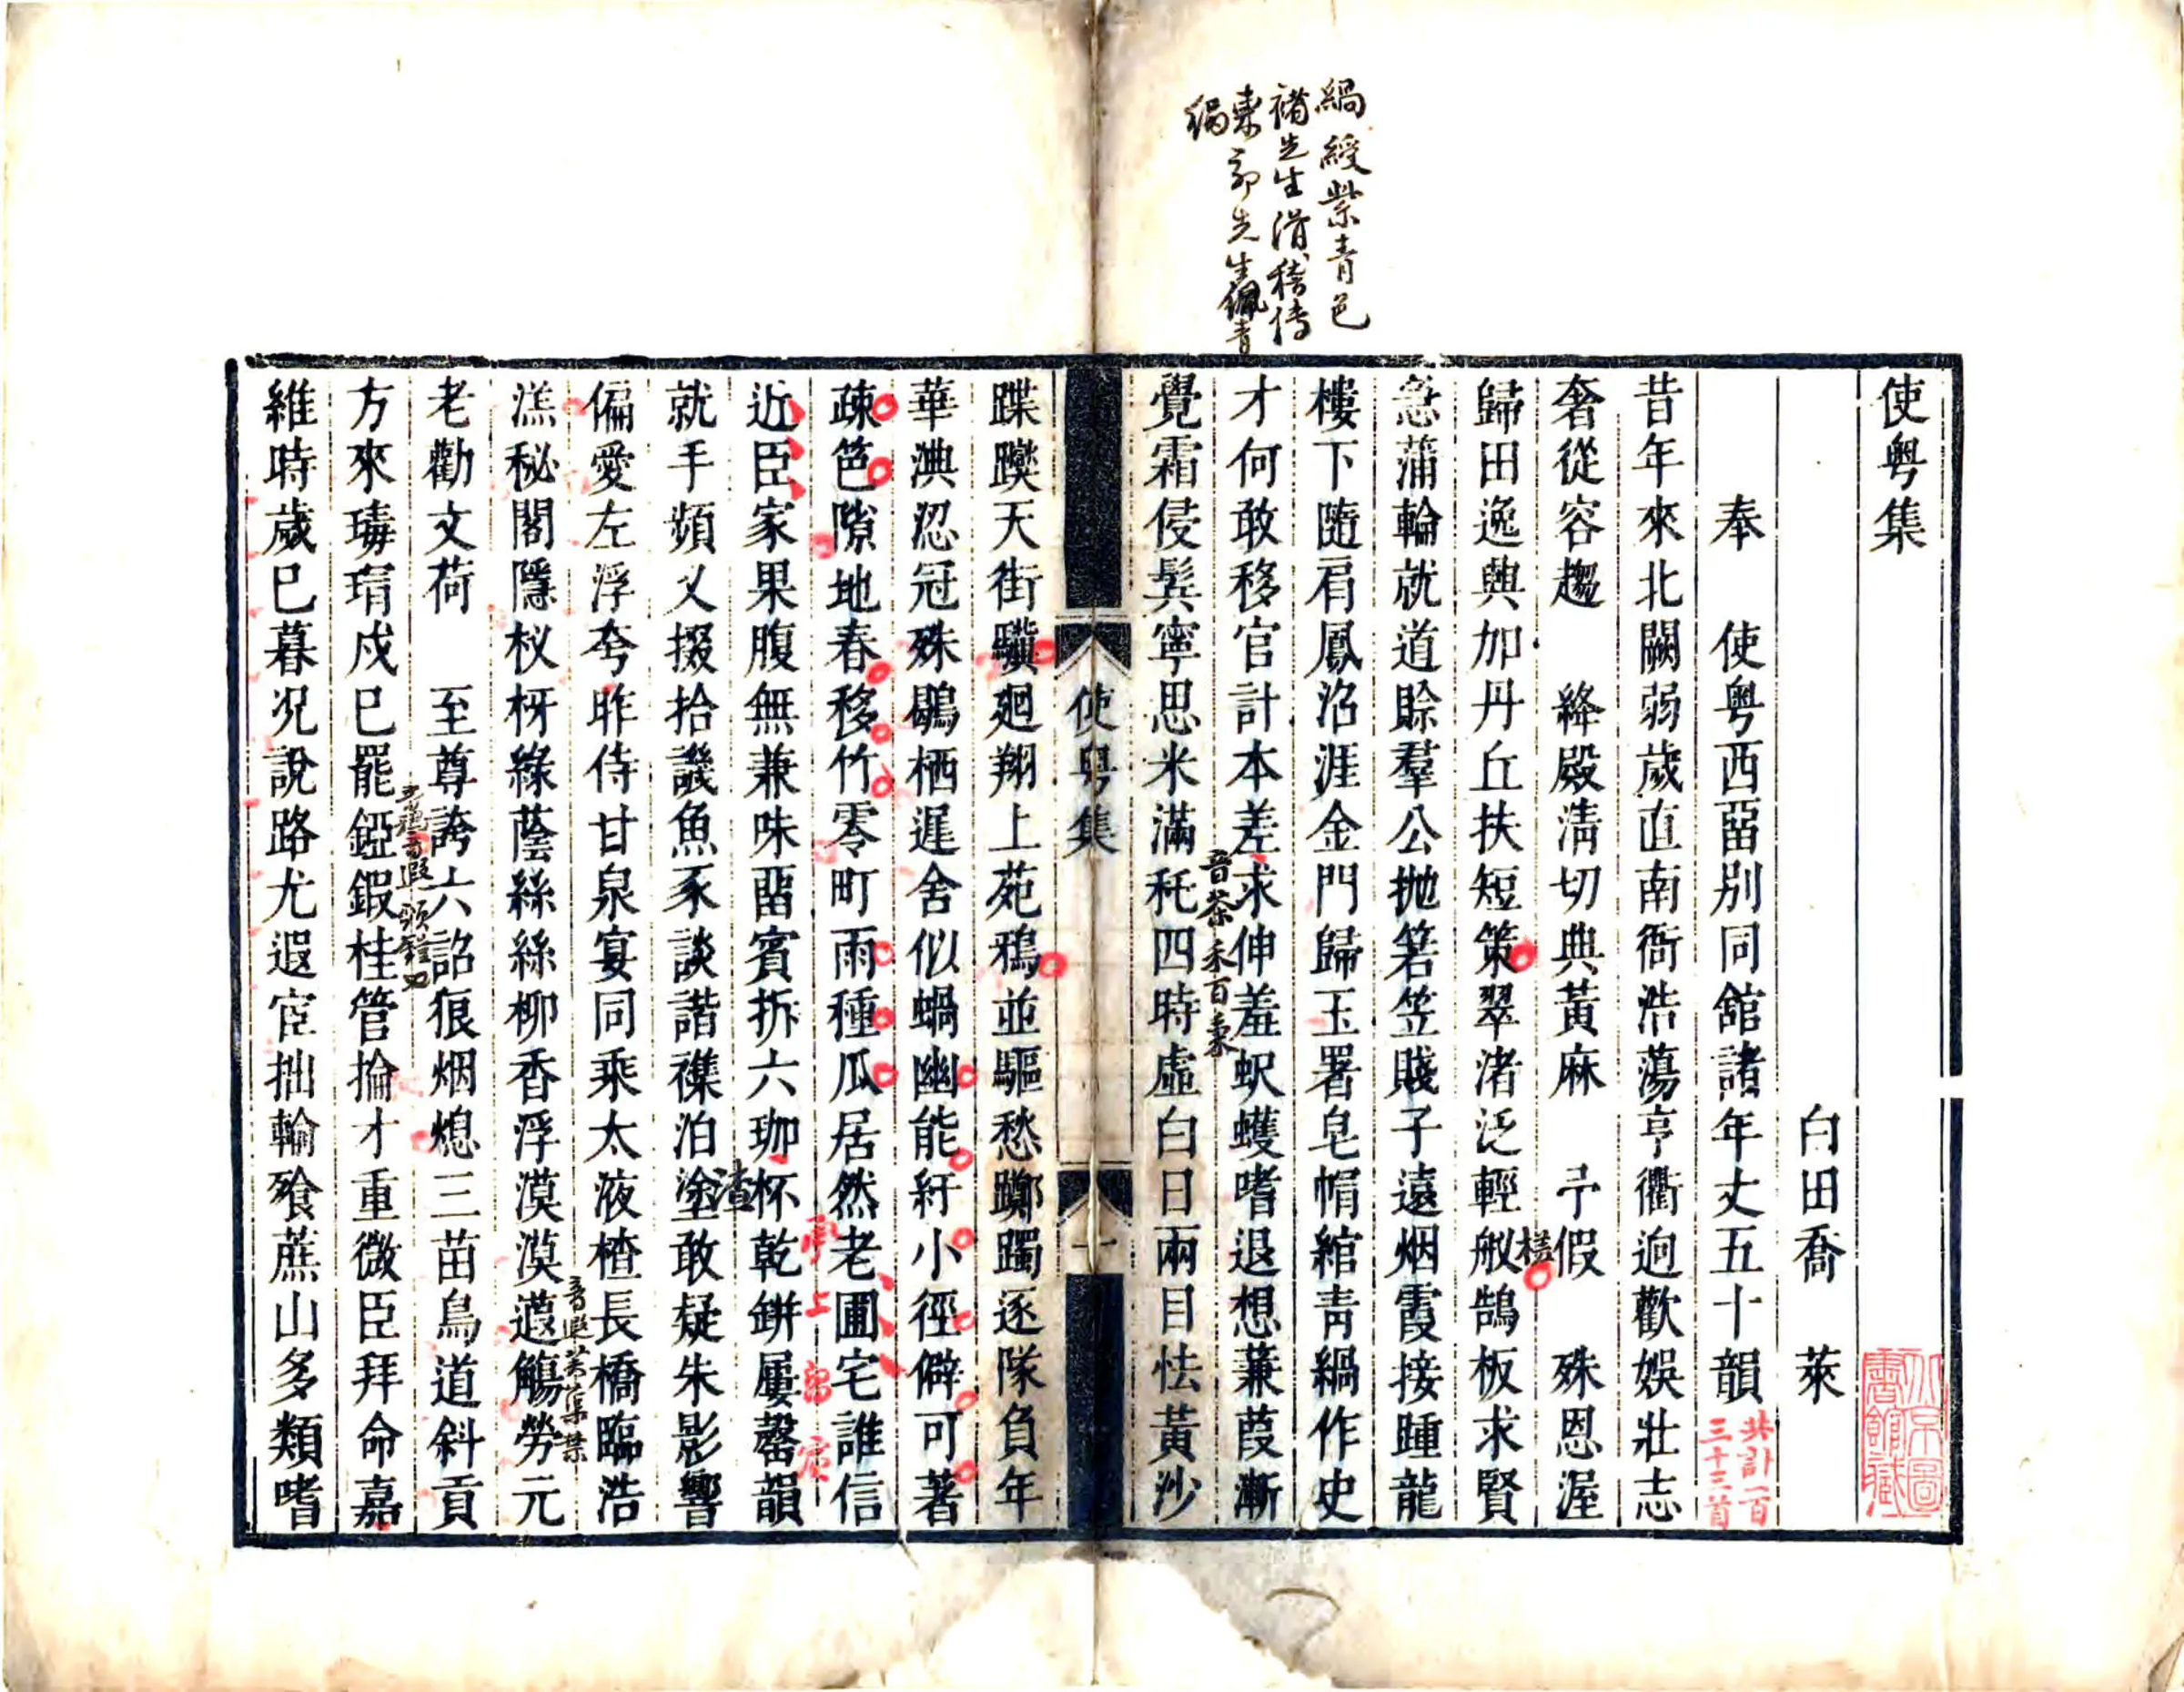 緺綬紫青色
褚先生滑稽傳
東郭先生佩青
緺
使粤集
白田喬　萊
奉　使粤西畱别同館諸年丈五十韻
共計一百
三十三首
昔年來北闕弱歲直南衙浩蕩亨衢逈歡娛壯志
奢從容趨　絳殿淸切典黃麻　予假　殊恩渥
歸田逸興加丹丘扶短策翠渚泛輕艖鵠板求賢
急蒲輪就道賒羣公拋箬笠賤子遠烟霞接踵龍
樓下隨肩鳳沼涯金門歸玉署皂帽綰青緺作史
才何敢移官計本差求伸羞蚇蠖嗜退想蒹葭漸
覺霜侵鬂寧思米滿秅四時虛白日兩目怯黃沙
音茶禾百秉
使粤集
一
蹀躞天街驥廻翔上苑鴉並驅愁躑躅逐隊負年
華淟涊冠殊鷸栖遲舍似蝸幽能紆小徑僻可著
疎笆隙地春移竹零町雨種瓜居然老圃宅誰信
近臣家果腹無兼味畱賓折六珈杯乾缾屢罄韻
就手頻乂掇拾譏魚豕談諧襍泊塗敢疑朱影響
渣
偏愛左浮夸昨侍甘泉宴同乘太液楂長橋臨浩
漾秘閣隱杈枒綠蔭絲絲柳香浮漠漠葭觴勞元
老勸文荷　至尊誇六詔狼烟熄三苗鳥道斜貢
方來瑇瑁戍巳罷錏鍜桂管掄才重微臣拜命嘉
維時歲巳暮况說路尤遐宦拙輸飱蔗山多類嗜